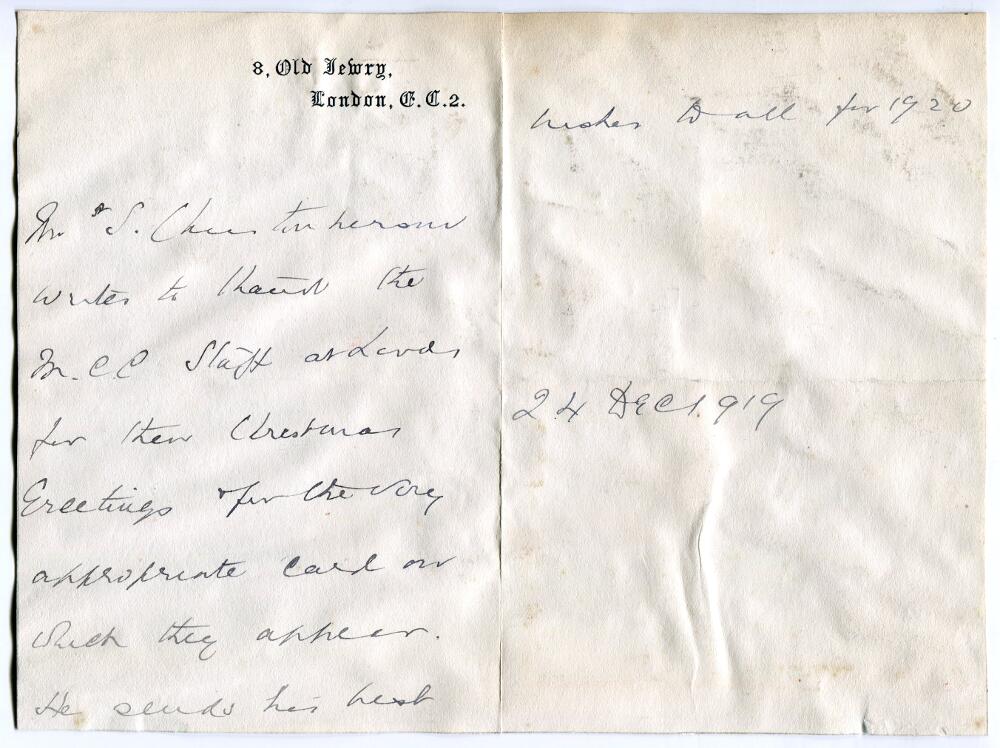 8, Old Jewry,
London, E.C.2.
Mr S. Christopherson
writes to thank the
M.C.C Staff at Lords
for their Christmas
Greetings & for the very
appropriate card on
which they appear.
He sends his best
wishes to all for 1920
24 Dec 1.919